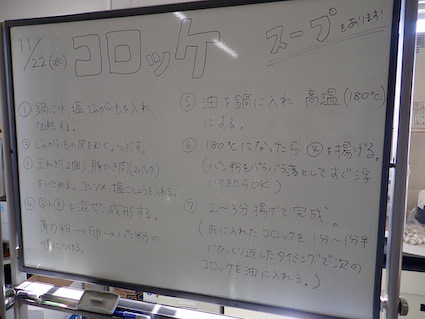 11/22(水) コロッケ
スープもあります!
① 鍋に水、塩、じゃがいもを入れ
加熱する。
② じゃがいもの皮をむく。つぶす。
③ 玉ねぎ(2個)、豚ひき肉(2パック)
をいためる。コンソメ、塩こしょうを入れる。
④ ②と③を混ぜ、成形する。
薄力粉→卵→パン粉の
順につける。
⑤ 油を鍋に入れ、高温(180℃)
にする。
⑥ 180℃になったら④を揚げる。
(パン粉をパラパラ落としてすぐ浮
いてきたらOK)
⑦ 2~3分揚げて完成。
(先に入れたコロッケを1分~1分半
でひっくり返したタイミングで次の
コロッケを油に入れる。)